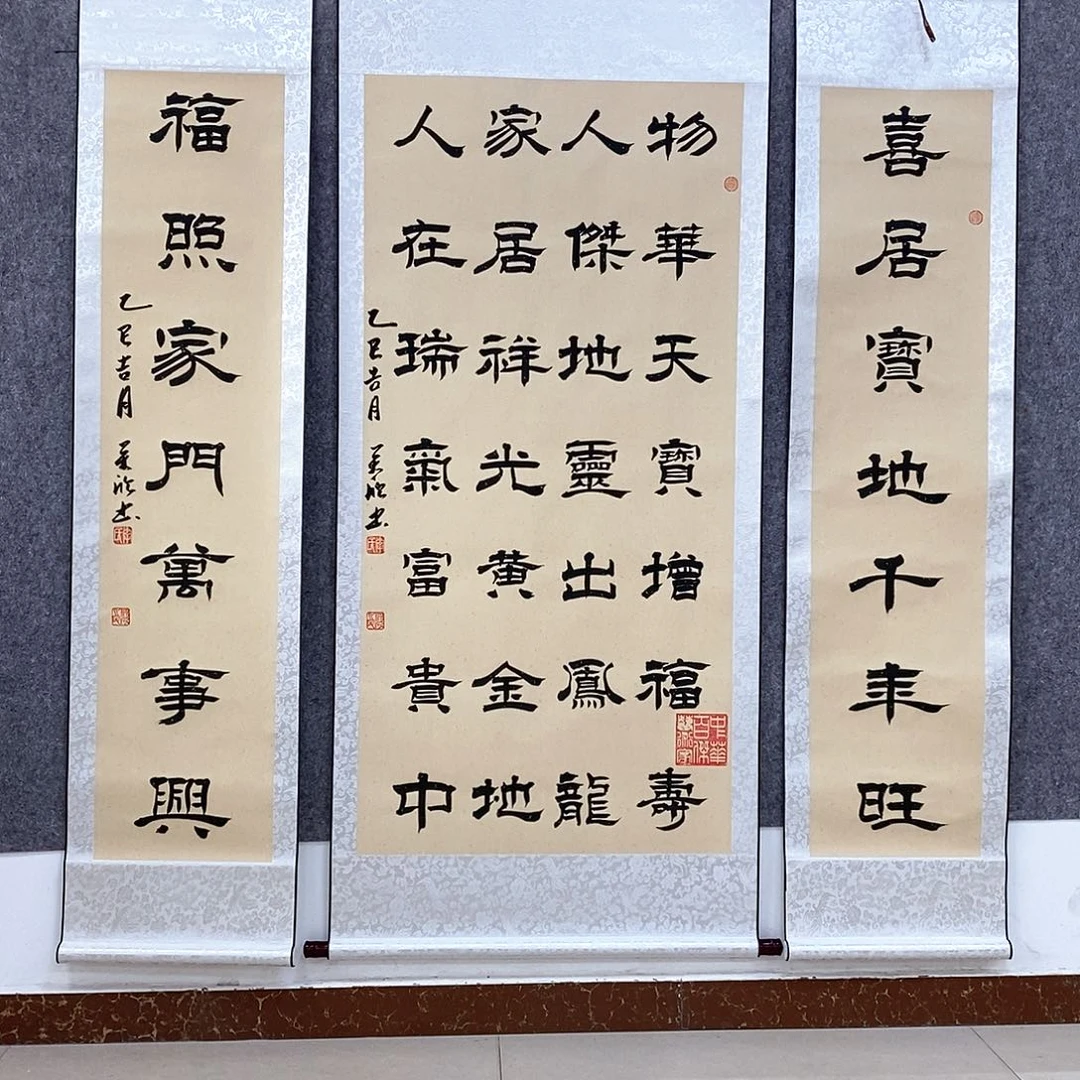 喜居寶地千年旺
物華天寶增福壽
人傑地靈出鳳龍
家居祥光黄金地
人在瑞氣富貴中
乙巳吉月
中華百傑
福照家門萬事興
乙巳吉月